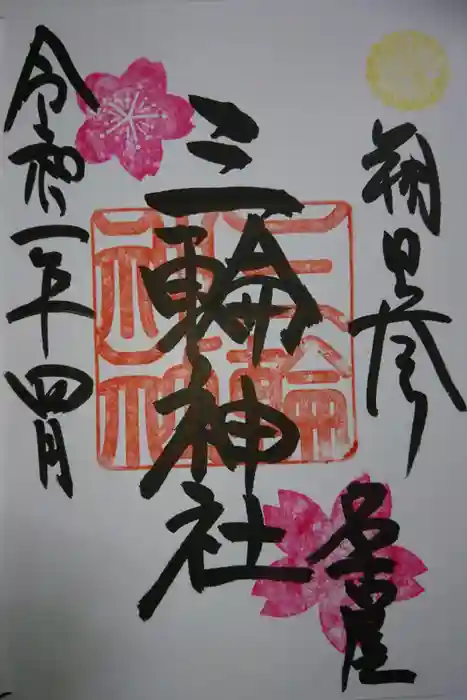 朔日参り
名古屋
三輪神社
令和二年四月
三輪
神社